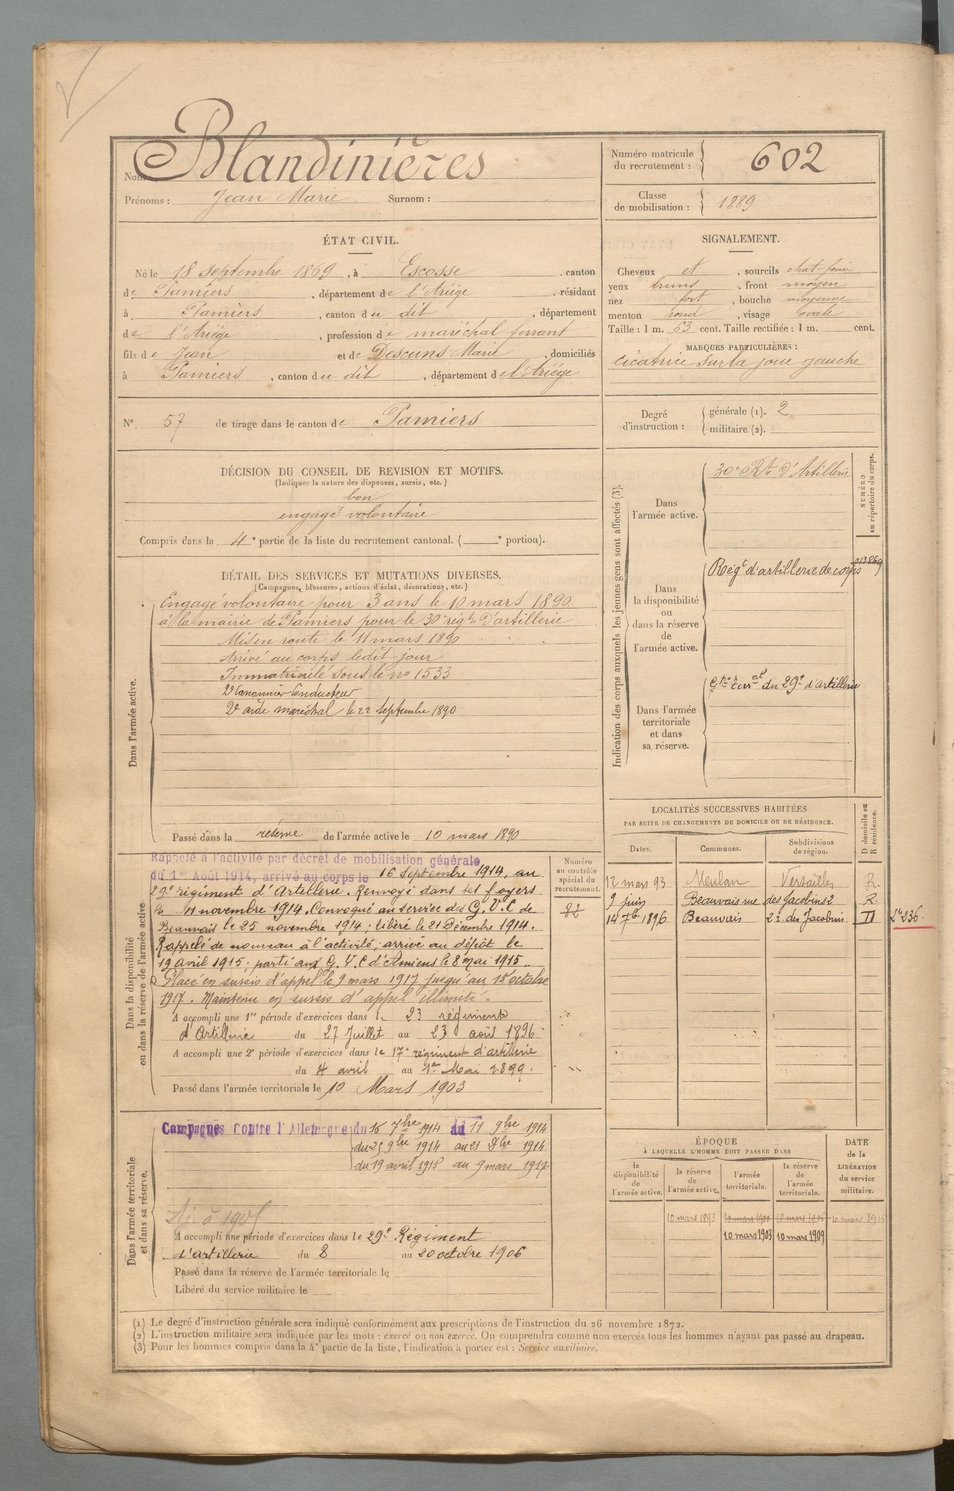 Nom : Blandinières
Prénoms : Jean Marie Surnom :
Numéro matricule du recrutement : 602
Classe de mobilisation : 1889
ÉTAT CIVIL.
Né le 18 septembre 1869, à Escosse, canton
de Pamiers, département de l'Ariège, résidant
à Pamiers, canton du dit, département
de l'Ariège, profession de maréchal ferrant
fils de Jean et de Descuns Marie, domiciliés
à Pamiers, canton du dit, département de l'Ariège
SIGNALEMENT.
Cheveux et, sourcils chat-foncé
yeux bruns, front moyen
nez fort, bouche moyenne
menton rond, visage ovale
Taille : 1 m. 63 cent. Taille rectifiée : 1 m. cent.
MARQUES PARTICULIÈRES :
cicatrice sur la joue gauche
N° 57 de tirage dans le canton de Pamiers
Degré d'instruction : générale (1). 2
militaire (2).
DÉCISION DU CONSEIL DE REVISION ET MOTIFS.
(Indiquer la nature des dispenses, sursis, etc.)
bon
engagé volontaire
Compris dans la 4e partie de la liste du recrutement cantonal. ( e portion).
DÉTAIL DES SERVICES ET MUTATIONS DIVERSES.
(Campagnes, blessures, actions d'éclat, décorations, etc.)
Dans l'armée active.
Engagé volontaire pour 3 ans le 10 mars 1890
à la mairie de Pamiers pour le 30e régt d'artillerie
Mis en route le 11 mars 1890
Arrivé au corps ledit jour
Immatriculé sous le no 1533
2e Canonnier Conducteur
2e aide maréchal le 22 septembre 1890
Passé dans la réserve de l'armée active le 10 mars 1890
Indication des corps auxquels les jeunes gens sont affectés (3).
NUMÉRO au répertoire du corps.
Dans l'armée active.
30e Rt d'Artillerie
Dans la disponibilité ou dans la réserve de l'armée active.
Régt d'artillerie de corps
Dans l'armée territoriale et dans sa réserve.
du 29e d'artillerie
LOCALITÉS SUCCESSIVES HABITÉES
PAR SUITE DE CHANGEMENTS DE DOMICILE OU DE RÉSIDENCE.
Dates. Communes. Subdivisions de région. D domicile ou R résidence.
12 mars 93 Meulan Versailles R.
9 juin Beauvais rue des Jacobins 2 R.
14 7bre 1896 Beauvais 2 r. des Jacobins D
236
Dans la disponibilité ou dans la réserve de l'armée active
Numéro au contrôle spécial du recrutement.
82
Rappelé à l'activité par décret de mobilisation générale
du 1er Août 1914, arrivé au corps le 16 Septembre 1914, au
29e régiment d'Artillerie. Renvoyé dans ses foyers
le 11 novembre 1914. Convoqué au service des G.V.C de
Beauvais le 25 novembre 1914 ; libéré le 21 Décembre 1914.
Rappelé de nouveau à l'activité ; arrivé au dépôt le
19 avril 1915 ; parti aux G.V.C d'Amiens le 8 mai 1915.
Placé en sursis d'appel le 9 mars 1917 jusqu'au 15 octobre
1917. Maintenu en sursis d'appel illimité.
A accompli une 1re période d'exercices dans le 23 régiment
d'Artillerie du 27 Juillet au 23 août 1896
A accompli une 2e période d'exercices dans le 17e régiment d'artillerie
du 4 avril au 1er Mai 1899.
Passé dans l'armée territoriale le 10 Mars 1903
Dans l'armée territoriale et dans sa réserve.
Campagnes Contre l'Allemagne du 16 7bre 1914 au 11 9bre 1914
du 25 9bre 1914 au 21 Xbre 1914
du 19 avril 1915 au 9 mars 1917
A accompli une période d'exercices dans le 29e Régiment
d'artillerie du 8 au 20 octobre 1906
Passé dans la réserve de l'armée territoriale le
Libéré du service militaire le
ÉPOQUE
À LAQUELLE L'HOMME DOIT PASSER DANS
la disponibilité de l'armée active. la réserve de l'armée active. l'armée territoriale. la réserve de l'armée territoriale.
DATE de la LIBÉRATION du service militaire.
10 mars 1893
10 mars 1903 10 mars 1909
(1) Le degré d'instruction générale sera indiqué conformément aux prescriptions de l'instruction du 26 novembre 1872.
(2) L'instruction militaire sera indiquée par les mots : exercé ou non exercé. On comprendra comme non exercés tous les hommes n'ayant pas passé au drapeau.
(3) Pour les hommes compris dans la 4e partie de la liste, l'indication à porter est : Service auxiliaire.